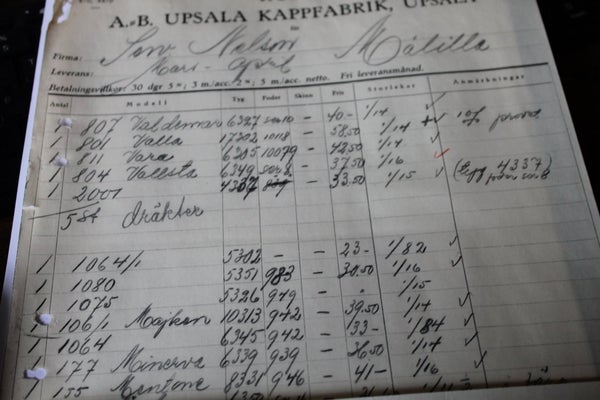 A.-B. UPSALA KAPPFABRIK, UPSALA
Firma: Sven Nelson Målilla
Leverans: Mars - April
Betalningsvillkor: 30 dgr 5 %; 3 m/acc. 2 %; 5 m/acc. netto. Fri leveransmånad.
Antal Modell Tyg Foder Skinn Pris Storlekar Anmärkningar
1 807 Valdemar 6327 - 40.- 1/14
1 801 Valla 17202 1018 - 58.50 1/14
1 811 Vara 6205 10079 - 42.50 1/14
1 804 Vallsta 6349 - 37.50 1/16
1 2001 - 33.50 1/15 4337
5 st dräkter
1 1064/1 5302 - - 23- 1/82
1 1080 5351 983 - 30.50 1/16
1 1075 5326 949 - 1/15
1 1061 Majken 10313 942 - 39.50 1/14
1 1064 6345 942 - 33- 1/84
1 177 Minerva 6339 939 - 36.50 1/14
1 155 8331 946 - 41- 1/16